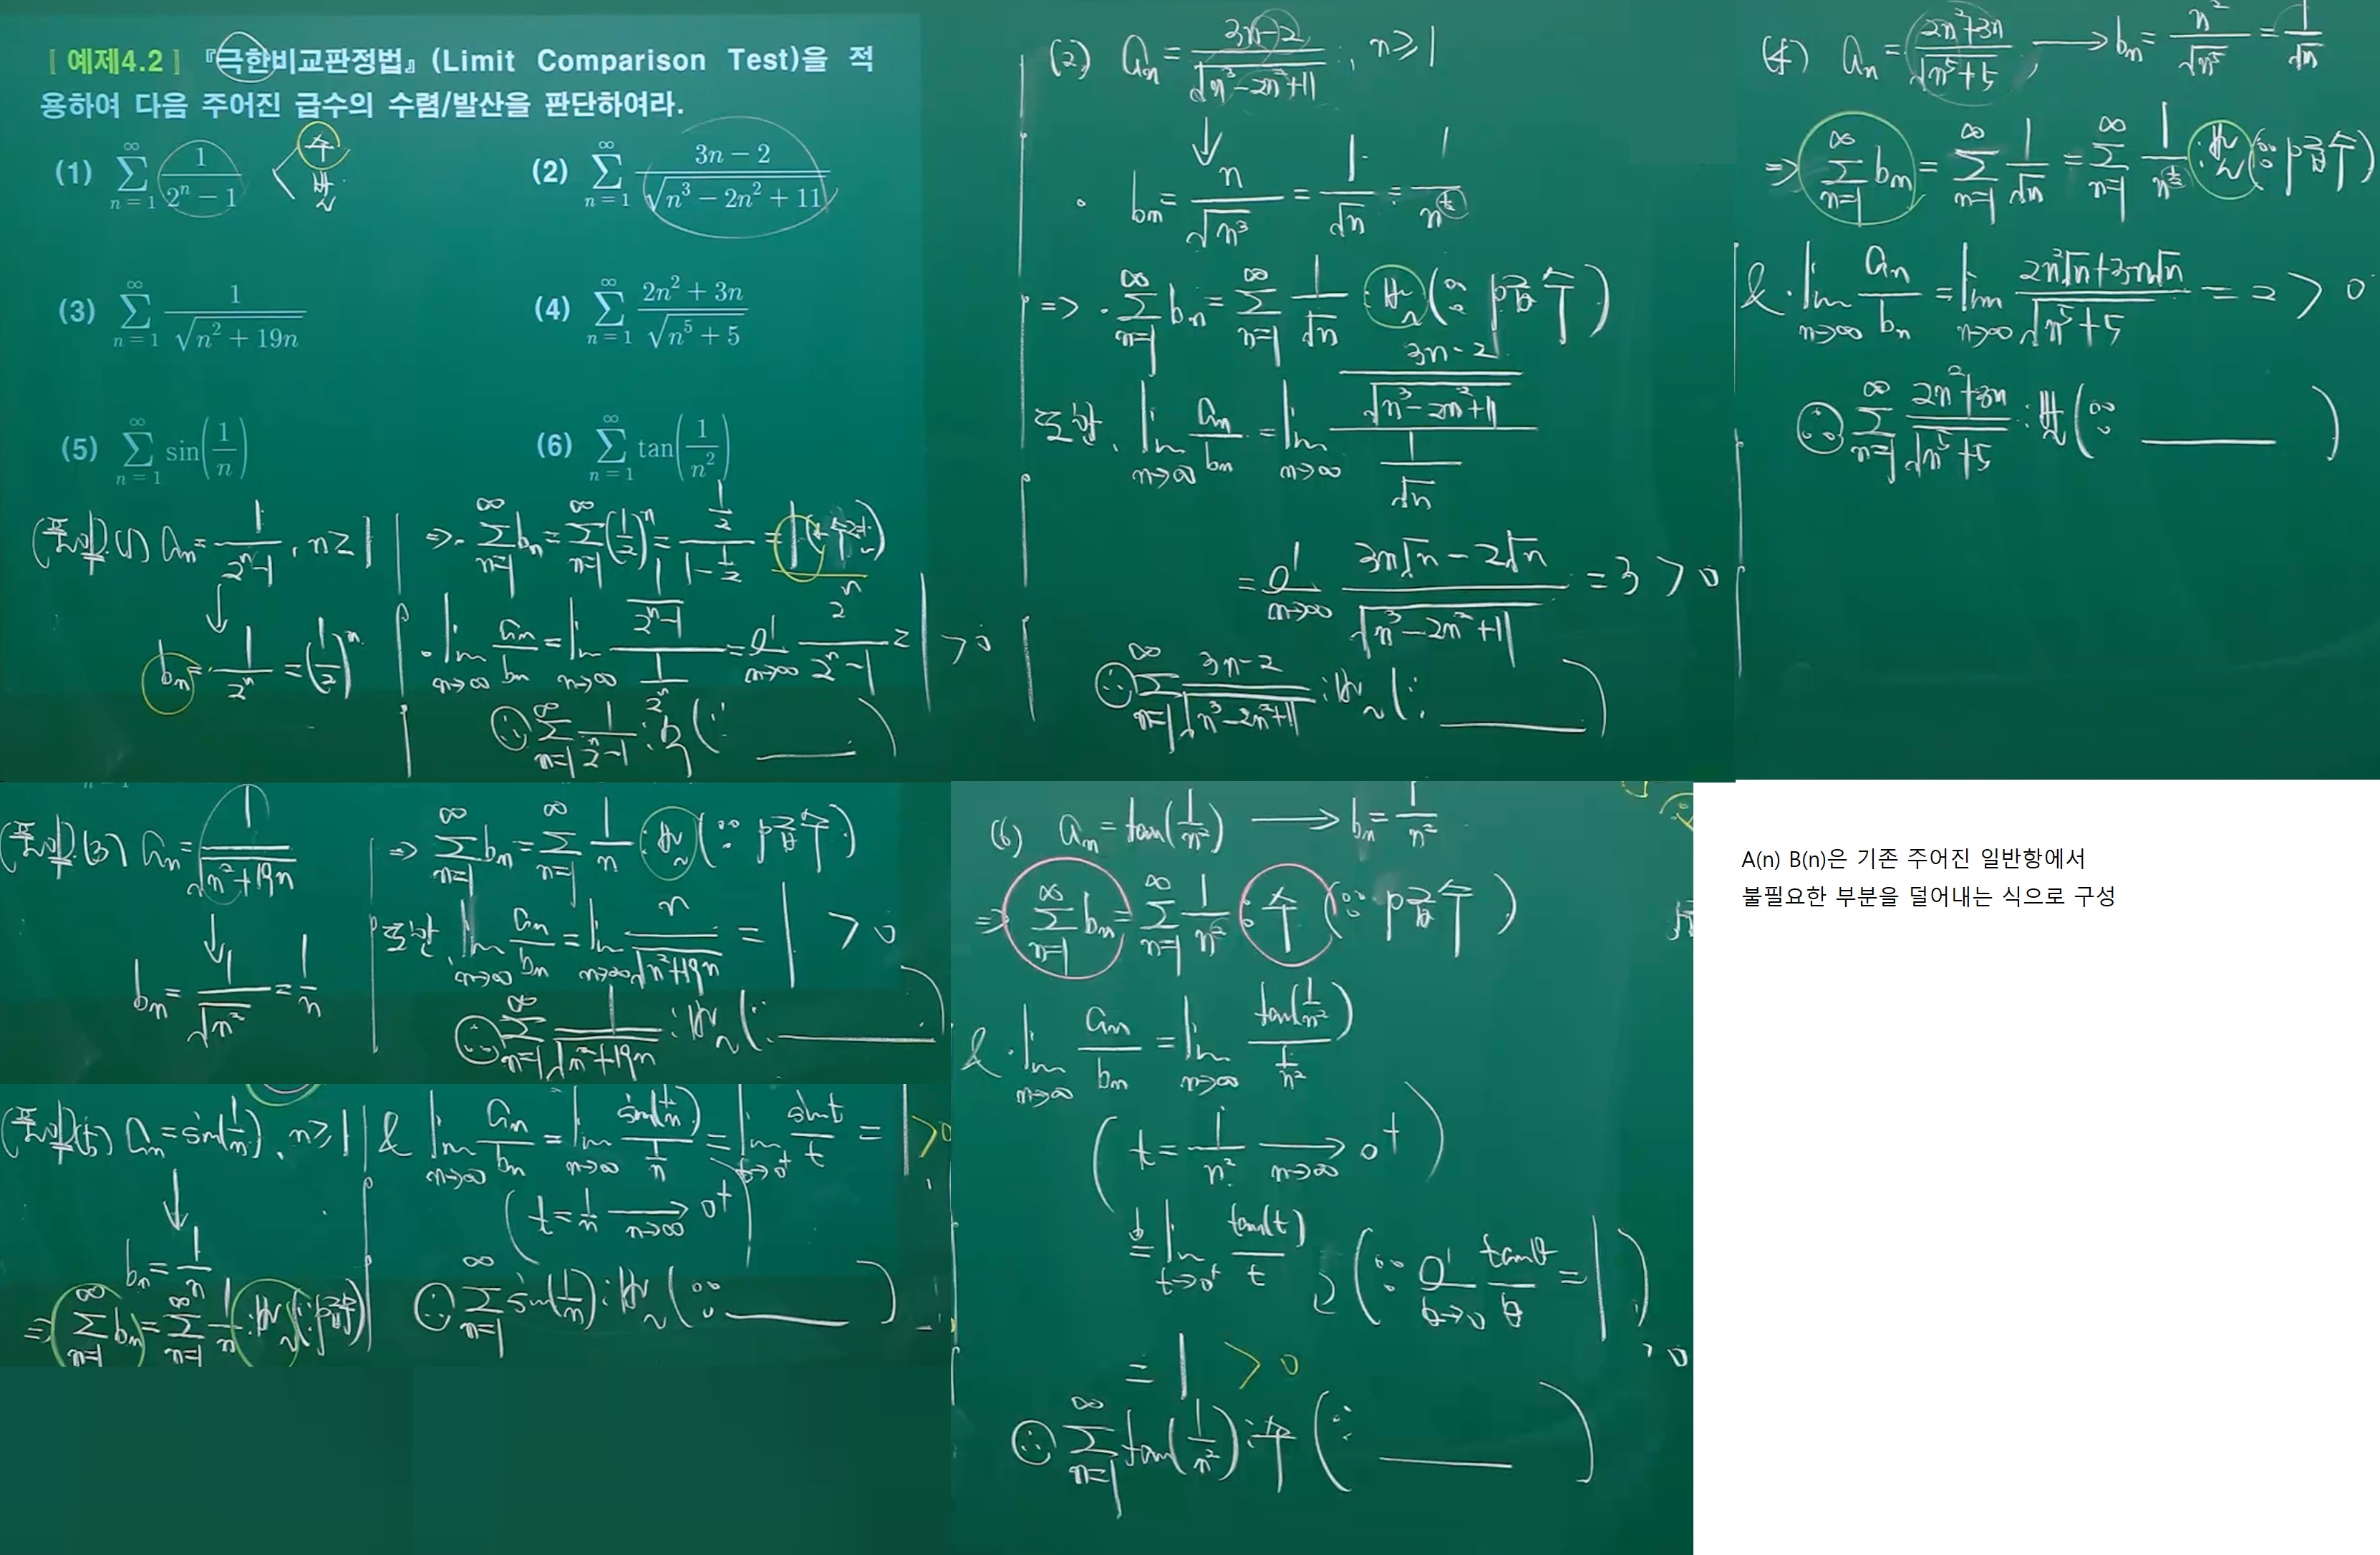 [ 예제4.2 ] 『극한비교판정법』(Limit Comparison Test)을 적
용하여 다음 주어진 급수의 수렴/발산을 판단하여라.
(1) \sum_{n=1}^{∞} \frac{1}{2^n - 1} < 수 발
(2) \sum_{n=1}^{∞} \frac{3n-2}{\sqrt{n^3 - 2n^2 + 11}}
(3) \sum_{n=1}^{∞} \frac{1}{\sqrt{n^2 + 19n}}
(4) \sum_{n=1}^{∞} \frac{2n^2 + 3n}{\sqrt{n^5 + 5}}
(5) \sum_{n=1}^{∞} sin(\frac{1}{n})
(6) \sum_{n=1}^{∞} tan(\frac{1}{n^2})
(풀이) (1) a_n = \frac{1}{2^n-1}, n ≥ 1
↓
b_n = \frac{1}{2^n} = (\frac{1}{2})^n
⇒ · \sum_{n=1}^{∞} b_n = \sum_{n=1}^{∞} (\frac{1}{2})^n = \frac{\frac{1}{2}}{1-\frac{1}{2}} = 1 (수렴)
· \lim_{n→∞} \frac{a_n}{b_n} = \lim_{n→∞} \frac{\frac{1}{2^n-1}}{\frac{1}{2^n}} = \lim_{n→∞} \frac{2^n}{2^n-1} = 1 > 0
∴ \sum_{n=1}^{∞} \frac{1}{2^n-1} : 수 (∵ ____ )
(2) a_n = \frac{3n-2}{\sqrt{n^3-2n^2+11}}, n ≥ 1
↓
· b_n = \frac{n}{\sqrt{n^3}} = \frac{1}{\sqrt{n}} = \frac{1}{n^{\frac{1}{2}}}
⇒ · \sum_{n=1}^{∞} b_n = \sum_{n=1}^{∞} \frac{1}{\sqrt{n}} : 발 (∵ p급수)
또한, \lim_{n→∞} \frac{a_n}{b_n} = \lim_{n→∞} \frac{\frac{3n-2}{\sqrt{n^3-2n^2+11}}}{\frac{1}{\sqrt{n}}}
= \lim_{n→∞} \frac{3n\sqrt{n} - 2\sqrt{n}}{\sqrt{n^3-2n^2+11}} = 3 > 0
∴ \sum_{n=1}^{∞} \frac{3n-2}{\sqrt{n^3-2n^2+11}} : 발 (∵ ____ )
(4) a_n = \frac{2n^2+3n}{\sqrt{n^5+5}}, → b_n = \frac{n^2}{\sqrt{n^5}} = \frac{1}{\sqrt{n}}
⇒ \sum_{n=1}^{∞} b_n = \sum_{n=1}^{∞} \frac{1}{\sqrt{n}} = \sum_{n=1}^{∞} \frac{1}{n^{\frac{1}{2}}} : 발 (∵ p급수)
& · \lim_{n→∞} \frac{a_n}{b_n} = \lim_{n→∞} \frac{2n^2\sqrt{n}+3n\sqrt{n}}{\sqrt{n^5+5}} = 2 > 0
∴ \sum_{n=1}^{∞} \frac{2n^2+3n}{\sqrt{n^5+5}} : 발 (∵ ____ )
(풀이) (3) a_n = \frac{1}{\sqrt{n^2+19n}}
↓
b_n = \frac{1}{\sqrt{n^2}} = \frac{1}{n}
⇒ \sum_{n=1}^{∞} b_n = \sum_{n=1}^{∞} \frac{1}{n} : 발 (∵ p급수)
또한 \lim_{n→∞} \frac{a_n}{b_n} = \lim_{n→∞} \frac{n}{\sqrt{n^2+19n}} = 1 > 0
∴ \sum_{n=1}^{∞} \frac{1}{\sqrt{n^2+19n}} : 발 (∵ ____ )
(풀이) (5) a_n = sin(\frac{1}{n}), n ≥ 1
↓
b_n = \frac{1}{n}
⇒ \sum_{n=1}^{∞} b_n = \sum_{n=1}^{∞} \frac{1}{n} : 발 (∵ p급수)
& \lim_{n→∞} \frac{a_n}{b_n} = \lim_{n→∞} \frac{sin(\frac{1}{n})}{\frac{1}{n}} = \lim_{t→0^+} \frac{sin t}{t} = 1 > 0
( t = \frac{1}{n} \xrightarrow{n→∞} 0^+ )
∴ \sum_{n=1}^{∞} sin(\frac{1}{n}) : 발 (∵ ____ )
(6) a_n = tan(\frac{1}{n^2}) → b_n = \frac{1}{n^2}
⇒ \sum_{n=1}^{∞} b_n = \sum_{n=1}^{∞} \frac{1}{n^2} : 수 (∵ p급수)
& · \lim_{n→∞} \frac{a_n}{b_n} = \lim_{n→∞} \frac{tan(\frac{1}{n^2})}{\frac{1}{n^2}}
( t = \frac{1}{n^2} \xrightarrow{n→∞} 0^+ )
= \lim_{t→0^+} \frac{tan(t)}{t} (∵ \lim_{θ→0} \frac{tanθ}{θ} = 1)
= 1 > 0
∴ \sum_{n=1}^{∞} tan(\frac{1}{n^2}) : 수 (∵ ____ )
A(n) B(n)은 기존 주어진 일반항에서
불필요한 부분을 덜어내는 식으로 구성